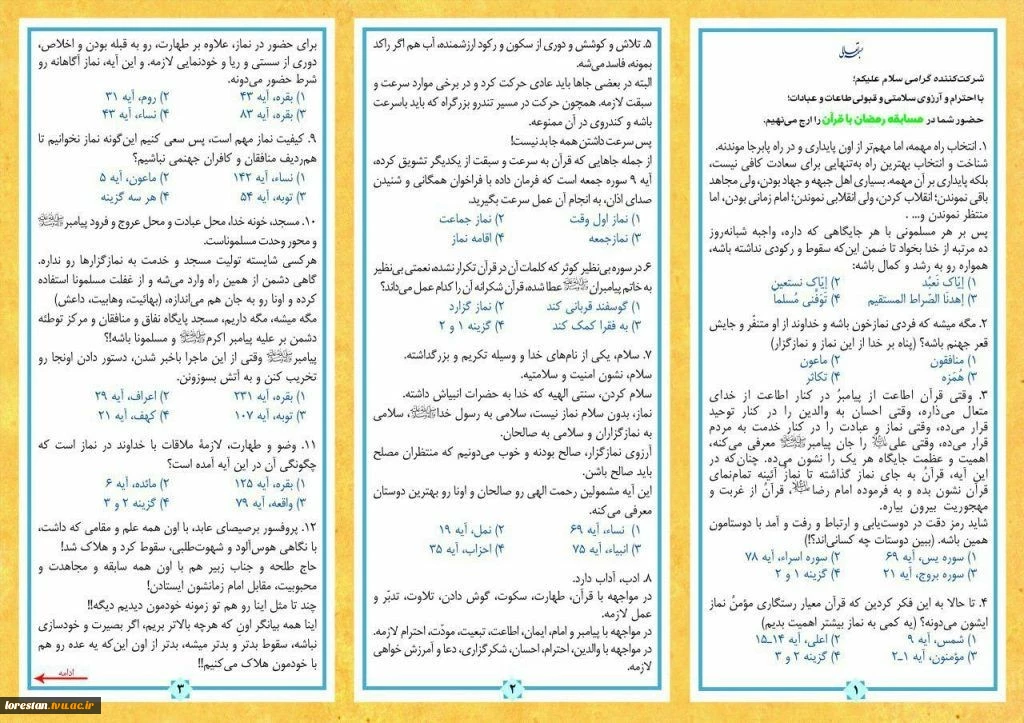 بسمه تعالی
شرکت‌کننده گرامی سلام علیکم؛
با احترام و آرزوی سلامتی و قبولی طاعات و عبادات؛
حضور شما در مسابقه رمضان با قرآن را ارج می‌نهیم.
۱. انتخاب راه مهمه، اما مهم‌تر از اون پایداری و در راه پابرجا موندنه.
شناخت و انتخاب بهترین راه به‌تنهایی برای سعادت کافی نیست،
بلکه پایداری بر آن مهمه. بسیاری اهل جبهه و جهاد بودن، ولی مجاهد
باقی نموندن؛ انقلاب کردن، ولی انقلابی نموندن؛ امام زمانی بودن، اما
منتظر نموندن و... .
پس بر هر مسلمونی با هر جایگاهی که داره، واجبه شبانه‌روز
ده مرتبه از خدا بخواد تا ضمن این‌که سقوط و رکودی نداشته باشه،
همواره رو به رشد و کمال باشه:
۱) إیّاک نَعبُد ۲) إیّاک نستعین
۳) إهدنَا الصّراط المستقیم ۴) تَوَفَّنی مُسلما
۲. مگه میشه که فردی نمازخون باشه و خداوند از او متنفّر و جایش
قعر جهنم باشه؟ (پناه بر خدا از این نماز و نمازگزار)
۱) منافقون ۲) ماعون
۳) هُمَزه ۴) تکاثر
۳. وقتی قرآن اطاعت از پیامبرُ در کنار اطاعت از خدای
متعال می‌ذاره، وقتی احسان به والدین را در کنار توحید
قرار می‌ده، وقتی نماز و عبادت را در کنار خدمت به مردم
قرار می‌ده، وقتی علی را جان پیامبر معرفی می‌کنه،
اهمیت و عظمت جایگاه هر یک را نشون می‌ده. چنان‌که در
این آیه، قرآنُ به جای نماز گذاشته تا نمازُ آئینه تمام‌نمای
قرآن نشون بده و به فرموده امام رضا، قرآنُ از غربت و
مهجوریت بیرون بیاره.
شاید رمز دقت در دوست‌یابی و ارتباط و رفت و آمد با دوستامون
همین باشه. (ببین دوستات چه کسانی‌اند؟!)
۱) سوره یس، آیه ۶۹ ۲) سوره اسراء، آیه ۷۸
۳) سوره بروج، آیه ۲۱ ۴) گزینه ۱ و ۲
۴. تا حالا به این فکر کردین که قرآن معیار رستگاری مؤمنُ نماز
ایشون می‌دونه؟ (یه کمی به نماز بیشتر اهمیت بدیم)
۱) شمس، آیه ۹ ۲) اعلی، آیه ۱۴ـ۱۵
۳) مؤمنون، آیه ۱ـ۲ ۴) گزینه ۲ و ۳
۱
۵. تلاش و کوشش و دوری از سکون و رکود ارزشمنده، آب هم اگر راکد
بمونه، فاسد می‌شه.
البته در بعضی جاها باید عادی حرکت کرد و در برخی موارد سرعت و
سبقت لازمه. همچون حرکت در مسیر تندرو بزرگراه که باید باسرعت
باشه و کندروی در آن ممنوعه.
پس سرعت داشتن همه جا بد نیست!
از جمله جاهایی که قرآن به سرعت و سبقت از یکدیگر تشویق کرده،
آیه ۹ سوره جمعه است که فرمان داده با فراخوان همگانی و شنیدن
صدای اذان، به انجام آن عمل سرعت بگیرید.
۱) نماز اول وقت ۲) نماز جماعت
۳) نمازجمعه ۴) اقامه نماز
۶. در سوره بی‌نظیر کوثر که کلمات آن در قرآن تکرار نشده، نعمتی بی‌نظیر
به خاتم پیامبران عطا شده، قرآن شکرانه آن را کدام عمل می‌داند؟
۱) گوسفند قربانی کند ۲) نماز گزارد
۳) به فقرا کمک کند ۴) گزینه ۱ و ۲
۷. سلام، یکی از نام‌های خدا و وسیله تکریم و بزرگداشته.
سلام، نشون امنیت و سلامتیه.
سلام کردن، سنتی الهیه که خدا به حضرات انبیاش داشته.
نماز، بدون سلام نماز نیست، سلامی به رسول خدا، سلامی
به نمازگزاران و سلامی به صالحان.
آرزوی نمازگزار، صالح بودنه و خوب می‌دونیم که منتظران مصلح
باید صالح باشن.
این آیه مشمولین رحمت الهی رو صالحان و اونا رو بهترین دوستان
معرفی می‌کنه.
۱) نساء، آیه ۶۹ ۲) نمل، آیه ۱۹
۳) انبیاء، آیه ۷۵ ۴) احزاب، آیه ۳۵
۸. ادب، آداب دارد.
در مواجهه با قرآن، طهارت، سکوت، گوش دادن، تلاوت، تدبّر و
عمل لازمه.
در مواجهه با پیامبر و امام، ایمان، اطاعت، تبعیت، مودّت، احترام لازمه.
در مواجهه با والدین، احترام، احسان، شکرگزاری، دعا و آمرزش خواهی
لازمه.
۲
برای حضور در نماز، علاوه بر طهارت، رو به قبله بودن و اخلاص،
دوری از سستی و ریا و خودنمایی لازمه. و این آیه، نماز آگاهانه رو
شرط حضور می‌دونه.
۱) بقره، آیه ۴۳ ۲) روم، آیه ۳۱
۳) بقره، آیه ۸۳ ۴) نساء، آیه ۴۳
۹. کیفیت نماز مهم است، پس سعی کنیم این‌گونه نماز نخوانیم تا
هم‌ردیف منافقان و کافران جهنمی نباشیم؟
۱) نساء، آیه ۱۴۲ ۲) ماعون، آیه ۵
۳) توبه، آیه ۵۴ ۴) هر سه گزینه
۱۰. مسجد، خونه خدا، محل عبادت و محل عروج و فرود پیامبر
و محور وحدت مسلموناست.
هرکسی شایسته تولیت مسجد و خدمت به نمازگزارها رو نداره.
گاهی دشمن از همین راه وارد می‌شه و از غفلت مسلمونا استفاده
کرده و اونا رو به جان هم می‌اندازه، (بهائیت، وهابیت، داعش)
مگه میشه، مگه داریم، مسجد پایگاه نفاق و منافقان و مرکز توطئه
دشمن بر علیه پیامبر اکرم و مسلمونا باشه!؟
پیامبر وقتی از این ماجرا باخبر شدن، دستور دادن اونجا رو
تخریب کنن و به آتش بسوزونن.
۱) بقره، آیه ۲۳۱ ۲) اعراف، آیه ۲۹
۳) توبه، آیه ۱۰۷ ۴) کهف، آیه ۲۱
۱۱. وضو و طهارت، لازمهٔ ملاقات با خداوند در نماز است که
چگونگی آن در این آیه آمده است؟
۱) بقره، آیه ۱۲۵ ۲) مائده، آیه ۶
۳) واقعه، آیه ۷۹ ۴) گزینه ۲ و ۳
۱۲. پروفسور برصیصای عابد، با اون همه علم و مقامی که داشت،
با نگاهی هوس‌آلود و شهوت‌طلبی، سقوط کرد و هلاک شد!
حاج طلحه و جناب زبیر هم با اون همه سابقه و مجاهدت و
محبوبیت، مقابل امام زمانشون ایستادن!
چند تا مثل اینا رو هم تو زمونه خودمون دیدیم دیگه!!
اینا همه بیانگر اونِ که هرچه بالاتر بریم، اگر بصیرت و خودسازی
نباشه، سقوط بدتر و بدتر میشه، بدتر از اون این‌که یه عده رو هم
با خودمون هلاک می‌کنیم!!
ادامه
۳
lorestan.tvu.ac.ir